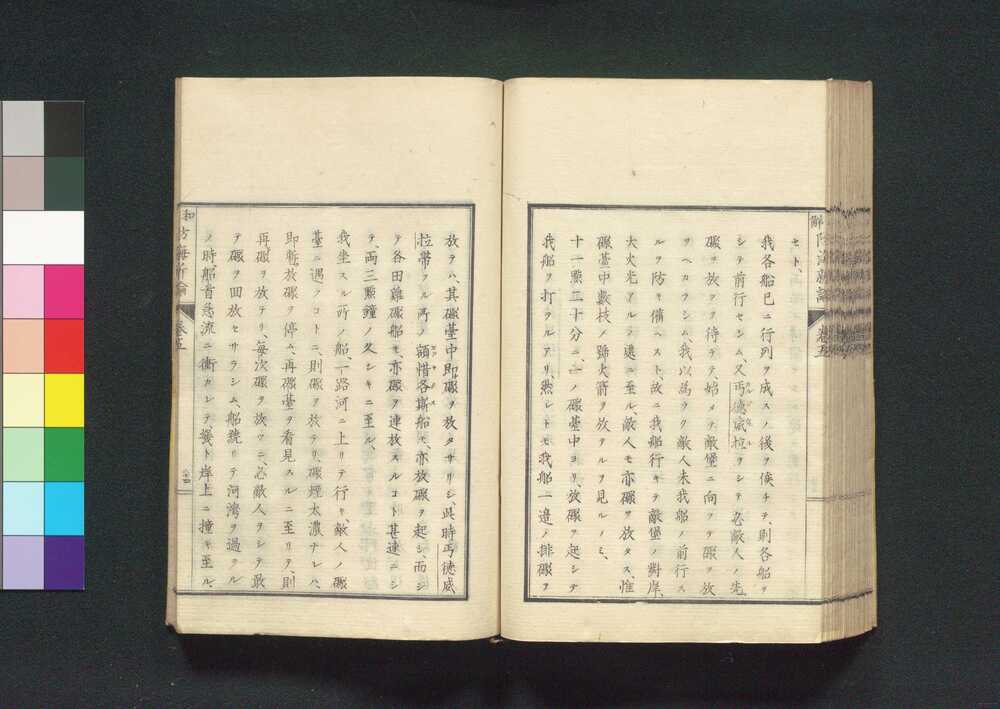 セト、
我各船已ニ行列ヲ成スノ後ヲ俟チテ、則各船ヲ
シテ前行セシム、又丐德威拉ヲシテ必敵人ノ先
礮ヲ放ツヲ待テ、始メテ敵堡ニ向フテ礮ヲ放
ツヘカラシム、我以為ラク敵人未我船ノ前行ス
ルヲ防キ備ヘスト、故ニ我船行キテ敵堡ノ對岸、
大火光アルヲ遠ニ至ル、敵人モ亦礮ヲ放タス、惟
礮臺中數枝ノ號火箭ヲ放ツルヲ見ルノミ、
十一點二十分ニ、一ノ礮臺中ヨリ、放礮ヲ起シテ
我船ヲ打ツルアリ、然レトモ我船一邉ノ排礮ヲ
解防海新論 卷五
放テハ、其礮臺中即礮ヲ放タサリシ、此時丐德威
拉帶フル所ノ額惜各斯船モ、亦放礮ヲ起シ、而シ
テ各田雞礮船モ、亦礮ヲ連放スルコト甚速ニシ
テ、両三㸃鐘ノ久シキニ至ル、
我坐スル所ノ船、一路河ニ上リテ行キ敵人ノ礮
臺ニ遇フコトニ、則礮ヲ放テリ、礮煙太濃ナレハ、
即暫放礮ヲ停ム、再礮臺ヲ看見スルニ至リテ、則
再礮ヲ放テリ、每次礮ヲ放ツニ、必敵人ヲシテ敢
テ礮ヲ回放セサラシム、船繞リテ河灣ヲ過クル
ノ時、船首急流ニ衝カレテ、幾ト岸上ニ撞キ至ル、
和 防海新論 卷五